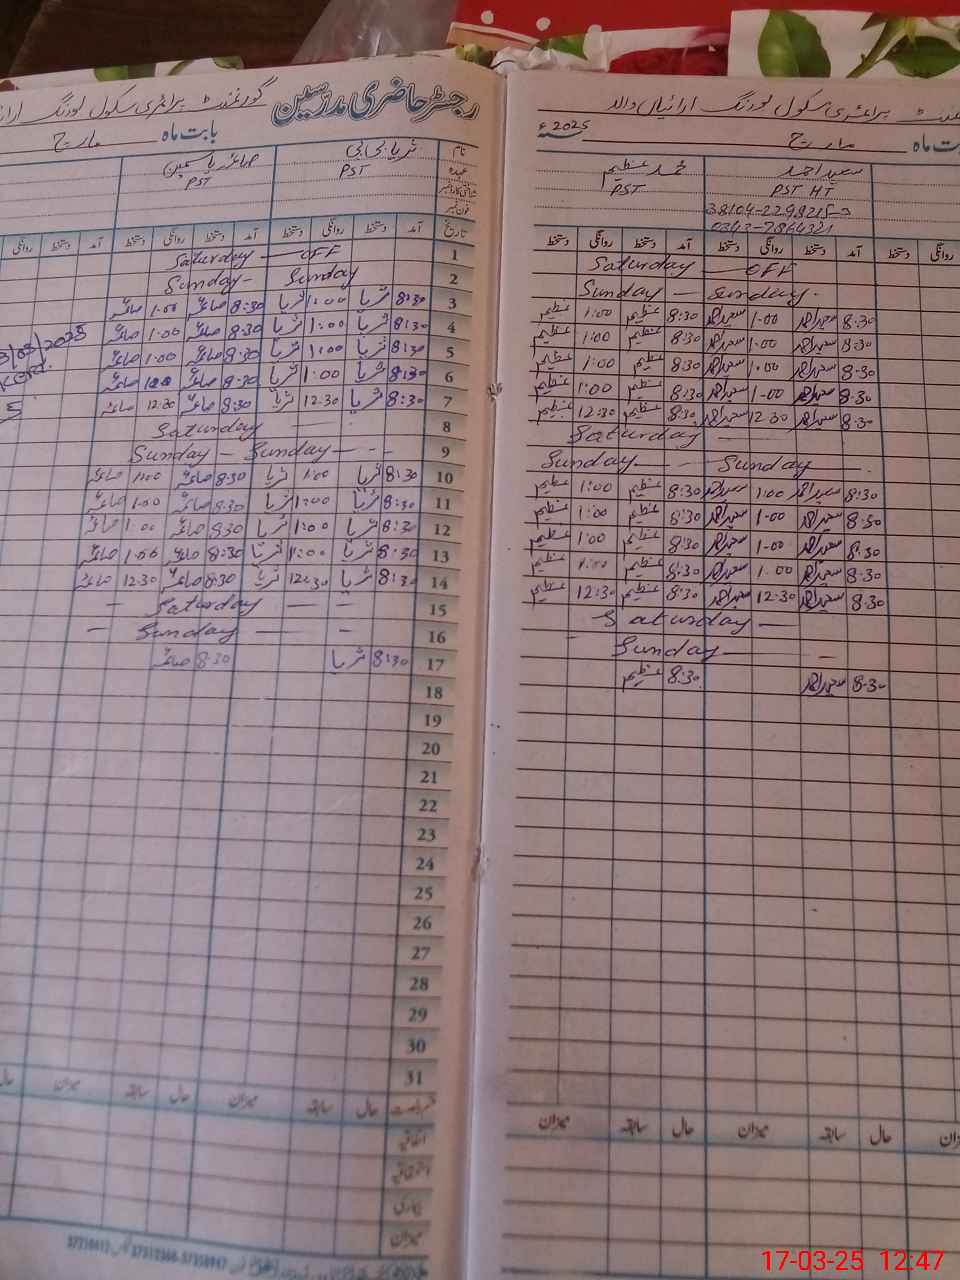 رجسٹر حاضری مدرسین گورنمنٹ پرائمری سکول
بابت ماہ مارچ
نام ثریا بی بی صائمہ یاسمین
عہدہ PST PST
شناختی کارڈ نمبر
فون نمبر
تاریخ آمد دستخط روانگی دستخط آمد دستخط روانگی دستخط آمد دستخط روانگی
1 Saturday — OFF
2 Sunday - Sunday
3 8:30 ثریا 1:00 ثریا 8:30 صائمہ 1-00 صائمہ
4 8:30 ثریا 1:00 ثریا 8:30 صائمہ 1-00 صائمہ
5 8:30 ثریا 1:00 ثریا 8:30 صائمہ 1-00 صائمہ
6 8:30 ثریا 1:00 ثریا 8:30 صائمہ 1-00 صائمہ
7 8:30 ثریا 12-30 ثریا 8:30 صائمہ 12-30 صائمہ
8 Saturday
9 Sunday - Sunday
10 8:30 ثریا 1:00 ثریا 8:30 صائمہ 1:00 صائمہ
11 8:30 ثریا 1:00 ثریا 8:30 صائمہ 1-00 صائمہ
12 8:30 ثریا 1:00 ثریا 8:30 صائمہ 1:00 صائمہ
13 8:30 ثریا 1:00 ثریا 8:30 صائمہ 1-00 صائمہ
14 8:30 ثریا 12:30 ثریا 8:30 صائمہ 12-30 صائمہ
15 Saturday
16 Sunday
17 8:30 ثریا 8:30 صائمہ
18
19
20
21
22
23
24
25
26
27
28
29
30
31
حال سابقہ میزان حال سابقہ میزان حال
اتفاقیہ
استحقاقیہ
بیماری
میزان
گورنمنٹ پرائمری سکول لورنگ ارائیاں والہ
بابت ماہ مارچ 2025ء
سعید احمد محمد عظیم
PST HT PST
38104-2298215-3
0343-7864321
روانگی دستخط آمد دستخط روانگی دستخط آمد دستخط روانگی دستخط
Saturday — OFF
Sunday — Sunday
8:30 سعید احمد 1-00 سعید احمد 8:30 عظیم 1:00 عظیم
8:30 سعید احمد 1-00 سعید احمد 8:30 عظیم 1:00 عظیم
8:30 سعید احمد 1-00 سعید احمد 8:30 عظیم 1:00 عظیم
8:30 سعید احمد 1-00 سعید احمد 8:30 عظیم 1:00 عظیم
8:30 سعید احمد 12-30 سعید احمد 8:30 عظیم 12:30 عظیم
Saturday
Sunday — Sunday
8:30 سعید احمد 1:00 سعید احمد 8:30 عظیم 1:00 عظیم
8:30 سعید احمد 1-00 سعید احمد 8:30 عظیم 1:00 عظیم
8:30 سعید احمد 1-00 سعید احمد 8:30 عظیم 1:00 عظیم
8:30 سعید احمد 1-00 سعید احمد 8:30 عظیم 1:00 عظیم
8:30 سعید احمد 12-30 سعید احمد 8:30 عظیم 12:30 عظیم
Saturday
Sunday
8:30 سعید احمد 8:30 عظیم
حال سابقہ میزان حال سابقہ میزان
17-03-25 12:47